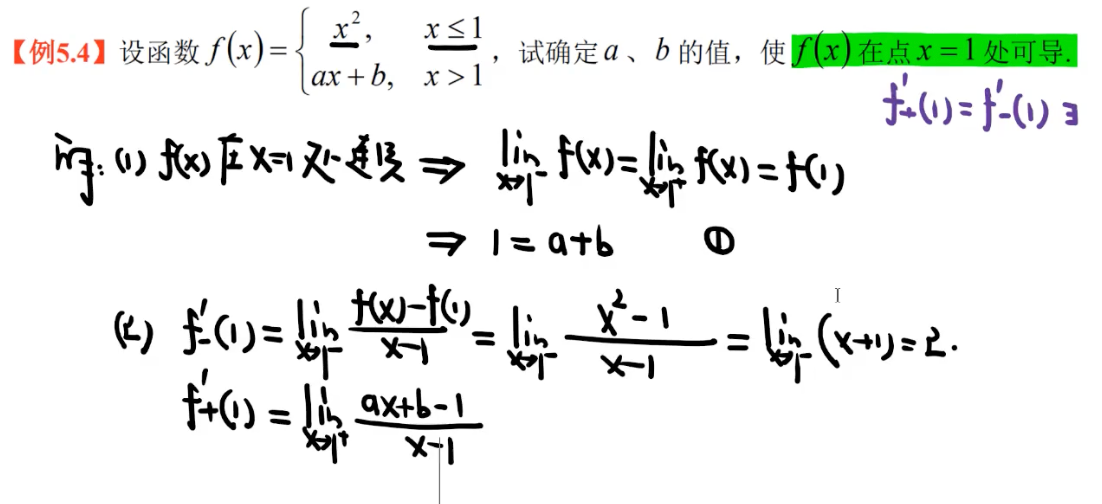 【例5.4】设函数 f(x)={ x², x≤1 ; ax+b, x>1 ，试确定a、b的值，使 f(x)在点x=1处可导.
f'₊(1)=f'₋(1) ∃
(1) f(x)在x=1处连续 ⇒ lim_{x→1⁻} f(x)=lim_{x→1⁺} f(x)=f(1)
⇒ 1=a+b ①
(2) f'₋(1)=lim_{x→1⁻} (f(x)-f(1))/(x-1) = lim_{x→1⁻} (x²-1)/(x-1) = lim_{x→1⁻} (x+1)=2.
f'₊(1)=lim_{x→1⁺} (ax+b-1)/(x-1)